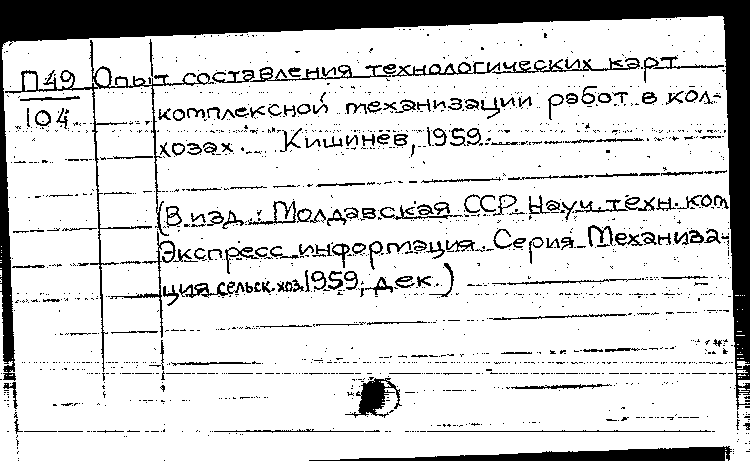 П49 Опыт составления технологических карт
104 комплексной механизации работ в кол-
хозах. Кишинев, 1959.
(В изд.: Молдавская ССР. Науч. техн. ком
Экспресс информация. Серия Механиза-
ция сельск. хоз. 1959, дек.)